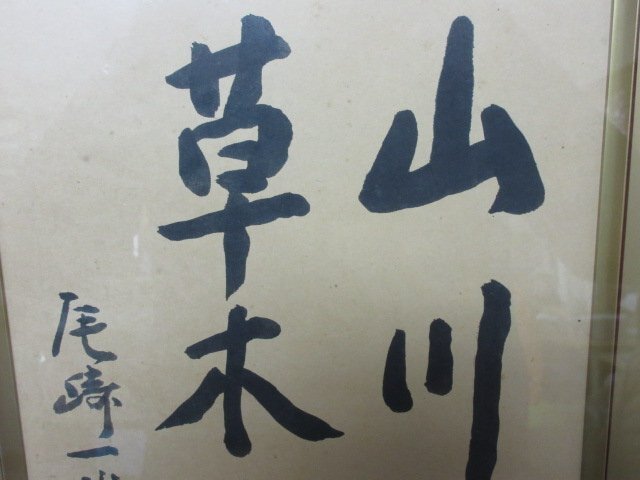 山川
草木
尾崎一